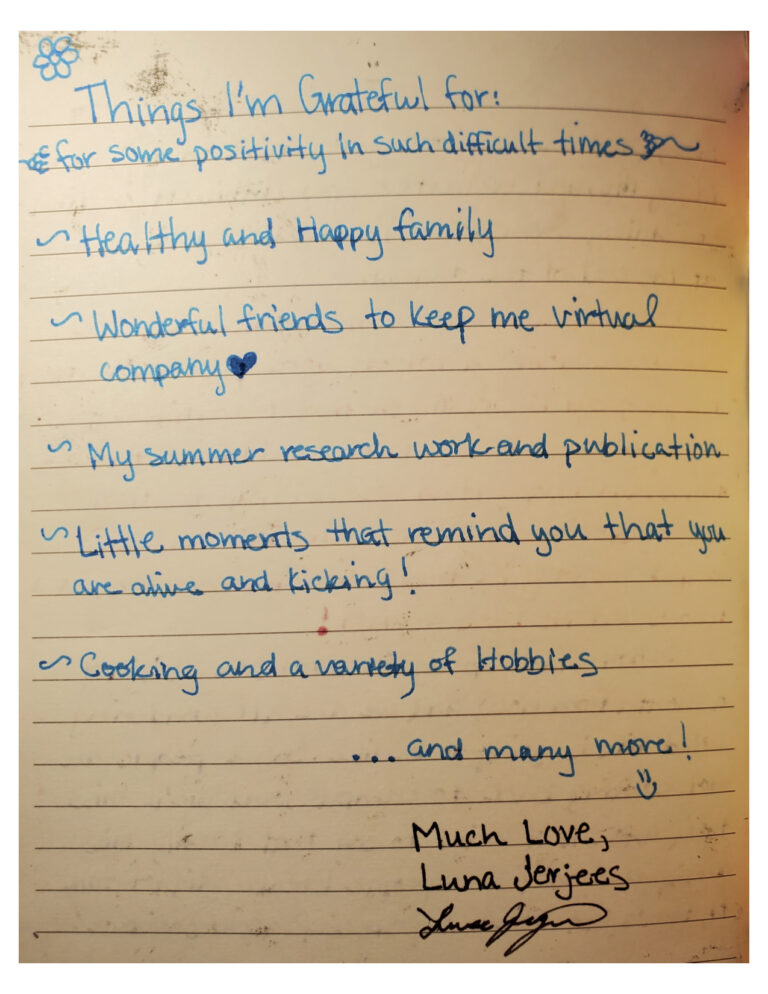 Things I'm Grateful for:
for some positivity in such difficult times
~ Healthy and Happy family
~ Wonderful friends to keep me virtual
company♥
~ My summer research work and publication
~ Little moments that remind you that you
are alive and kicking!
~ Cooking and a variety of Hobbies
... and many more!
Much Love,
Luna Jerjees